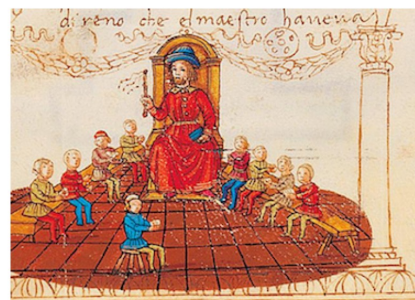 di reno che el maestro haveva